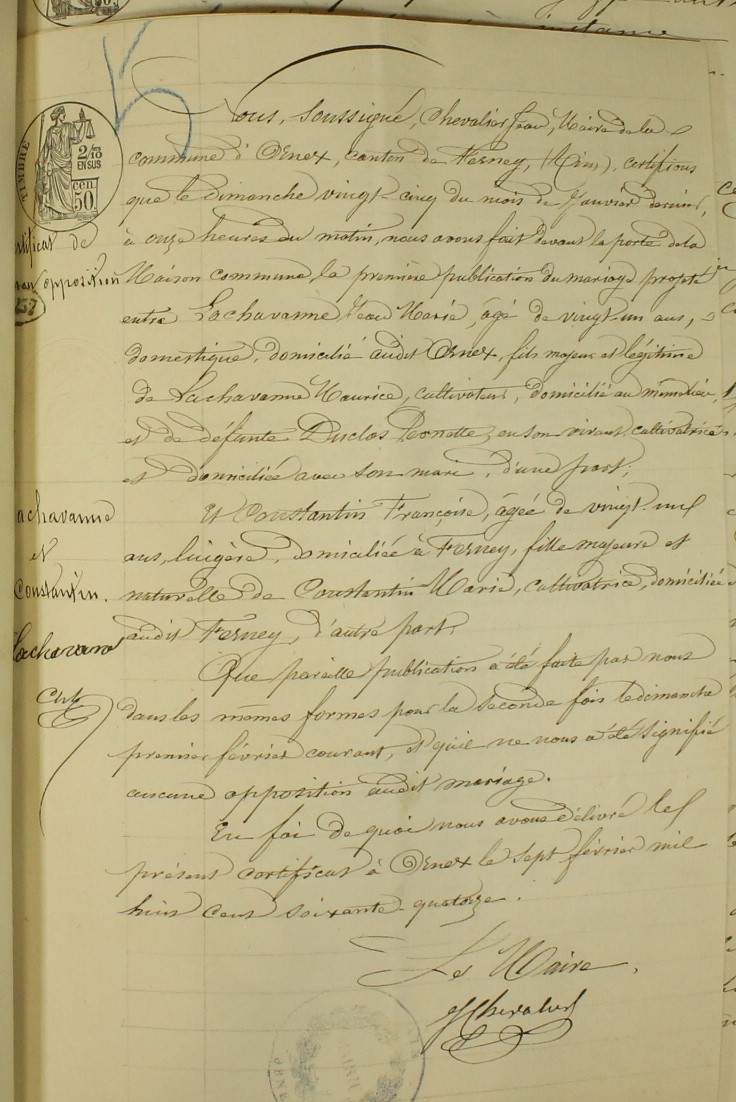 instance
5
TIMBRE
2/10
EN SUS
50 cen
Nous, soussigné, Chevalier Jean, Maire de la
commune d'Ornex, canton de Ferney, (Ain), certifions
que le dimanche vingt-cinq du mois de Janvier dernier,
à onze heures du matin, nous avons fait devant la porte de la
Maison commune, la première publication du mariage projeté
entre Lachavanne Jean Marie, âgé de vingt-un ans,
domestique, domicilié audit Ornex, fils majeur et légitime
de Lachavanne Maurice, cultivateur, domicilié au même lieu,
et de défunte Duclos Ponette, en son vivant cultivatrice
et domiciliée avec son mari, d'une part;
Et Constantin Françoise, âgée de vingt
ans, lingère, domiciliée à Ferney, fille majeure et
naturelle de Constantin Marie, cultivatrice, domiciliée
audit Ferney, d'autre part.
Que pareille publication a été faite par nous
dans les mêmes formes pour la seconde fois le dimanche
premier février courant, et qu'il ne nous a été signifié
aucune opposition audit mariage.
En foi de quoi nous avons délivré le
présent certificat à Ornex le sept février mil
huit cent soixante-quatorze.
Le Maire,
J Chevalier
tificat de
non opposition
257
achavanne
et
Constantin.
Lachavann